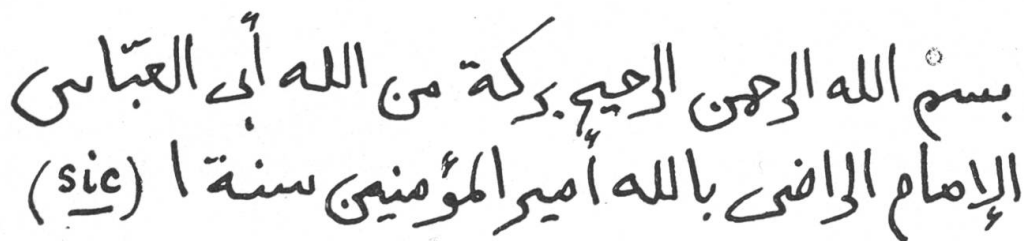 بسم الله الرحمن الرحيم بركة من الله أبى العبّاس
الإمام الراضى بالله أمير المؤمنين سنة ١ (sic)